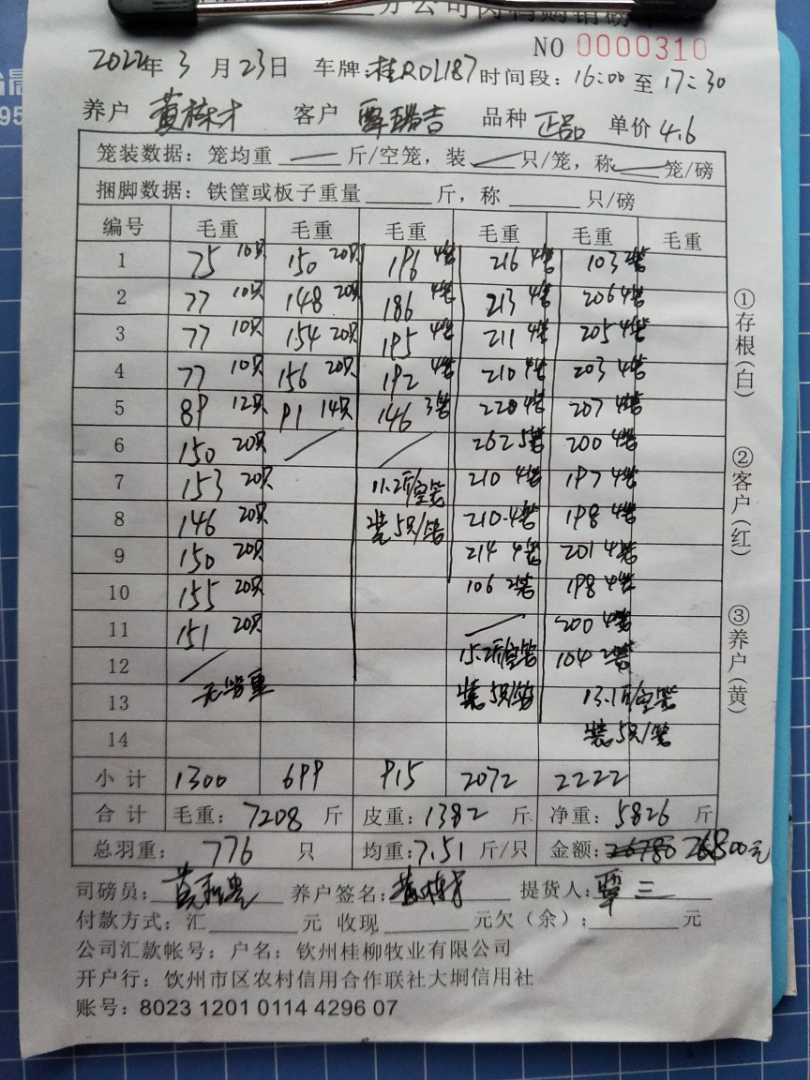 分公司肉鸭购销磅
NO 0000310
2022年 3 月 23日 车牌:桂R0L187 时间段: 16:00 至 17:30
养户 黄栋才 客户 覃瑞吉 品种 正品 单价 4.6
笼装数据: 笼均重 — 斤/空笼, 装 — 只/笼, 称 — 笼/磅
捆脚数据: 铁筐或板子重量 ______ 斤, 称 ______ 只/磅
编号 毛重 毛重 毛重 毛重 毛重 毛重
1 75 10只 150 20只 196 4笼 216 4笼 103 2笼
2 77 10只 148 20只 186 4笼 213 4笼 206 4笼
3 77 10只 154 20只 195 4笼 211 4笼 205 4笼
4 77 10只 156 20只 192 4笼 210 4笼 203 4笼
5 89 12只 91 14只 146 3笼 220 4笼 207 4笼
6 150 20只 262 5笼 200 4笼
7 153 20只 11.2斤/空笼 210 4笼 197 4笼
8 146 20只 装5只/笼 210 4笼 198 4笼
9 150 20只 214 4笼 201 4笼
10 155 20只 106 2笼 198 4笼
11 151 20只 200 4笼
12 15.2斤/空笼 104 2笼
13 无笼重 装5只/笼 13.1斤/空笼
14 装5只/笼
小计 1300 699 915 2072 2222
合计 毛重: 7208 斤 皮重: 1382 斤 净重: 5826 斤
总羽重: 776 只 均重: 7.51 斤/只 金额: 26780 26800元
司磅员: 养户签名: 黄栋才 提货人: 覃三
付款方式: 汇______元 收现______元欠(余): ______元
公司汇款帐号: 户名: 钦州桂柳牧业有限公司
开户行: 钦州市区农村信用合作联社大垌信用社
账号: 8023 1201 0114 4296 07
①存根(白)
②客户(红)
③养户(黄)